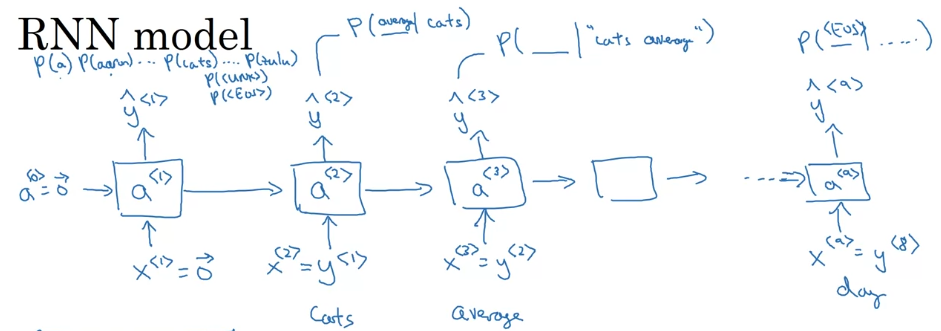 RNN model
P(a) P(aaron) ... P(cats) .... P(zulu)
P(<UNK>)
P(<EOS>)
P(average | cats)
P(___ | "cats average")
P(<EOS> | .....)
ŷ<1> ŷ<2> ŷ<3> ŷ<9>
a<0>=0⃗ a<1> a<2> a<3> a<9>
x<1>=0⃗ x<2>=y<1> x<3>=y<2> x<9>=y<8>
Cats average day